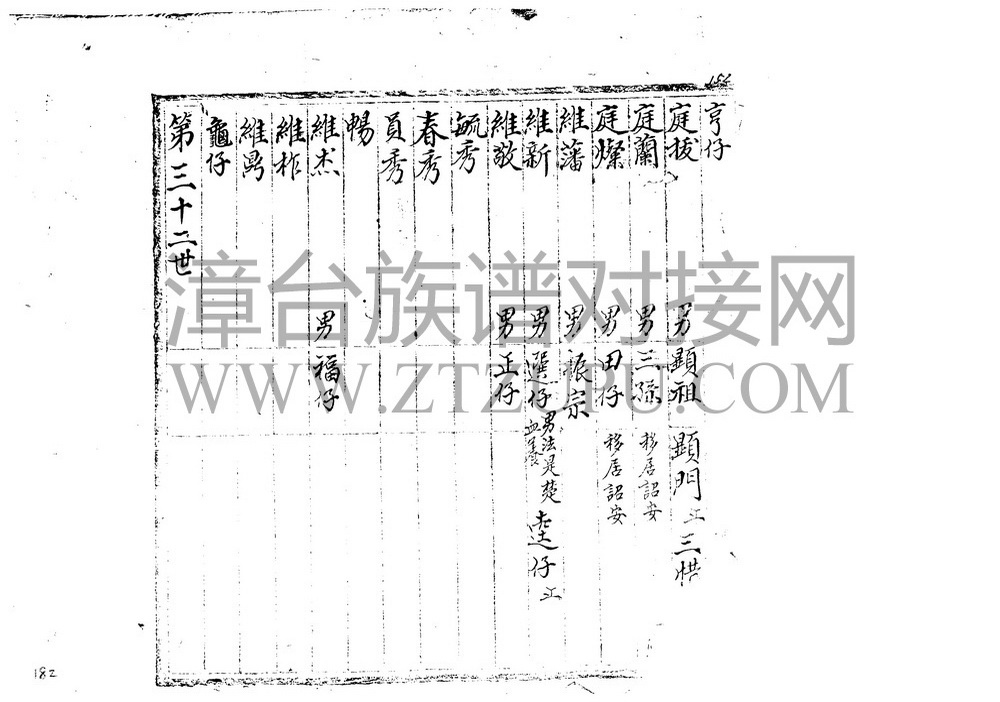 亨仔
庭拔 男 顯祖 顯門 三
庭蘭 男 三孫 移居詔安
庭燦 男 田仔 移居詔安
維藩 男 振宗
維新 男 選仔 男法是楚 逵仔
維敬 男 正仔
毓秀
春秀
員秀
暢
維杰 男 福仔
維柞
維
龜仔
第三十二世
漳台族谱对接网
WWW.ZTZUPU.COM
182